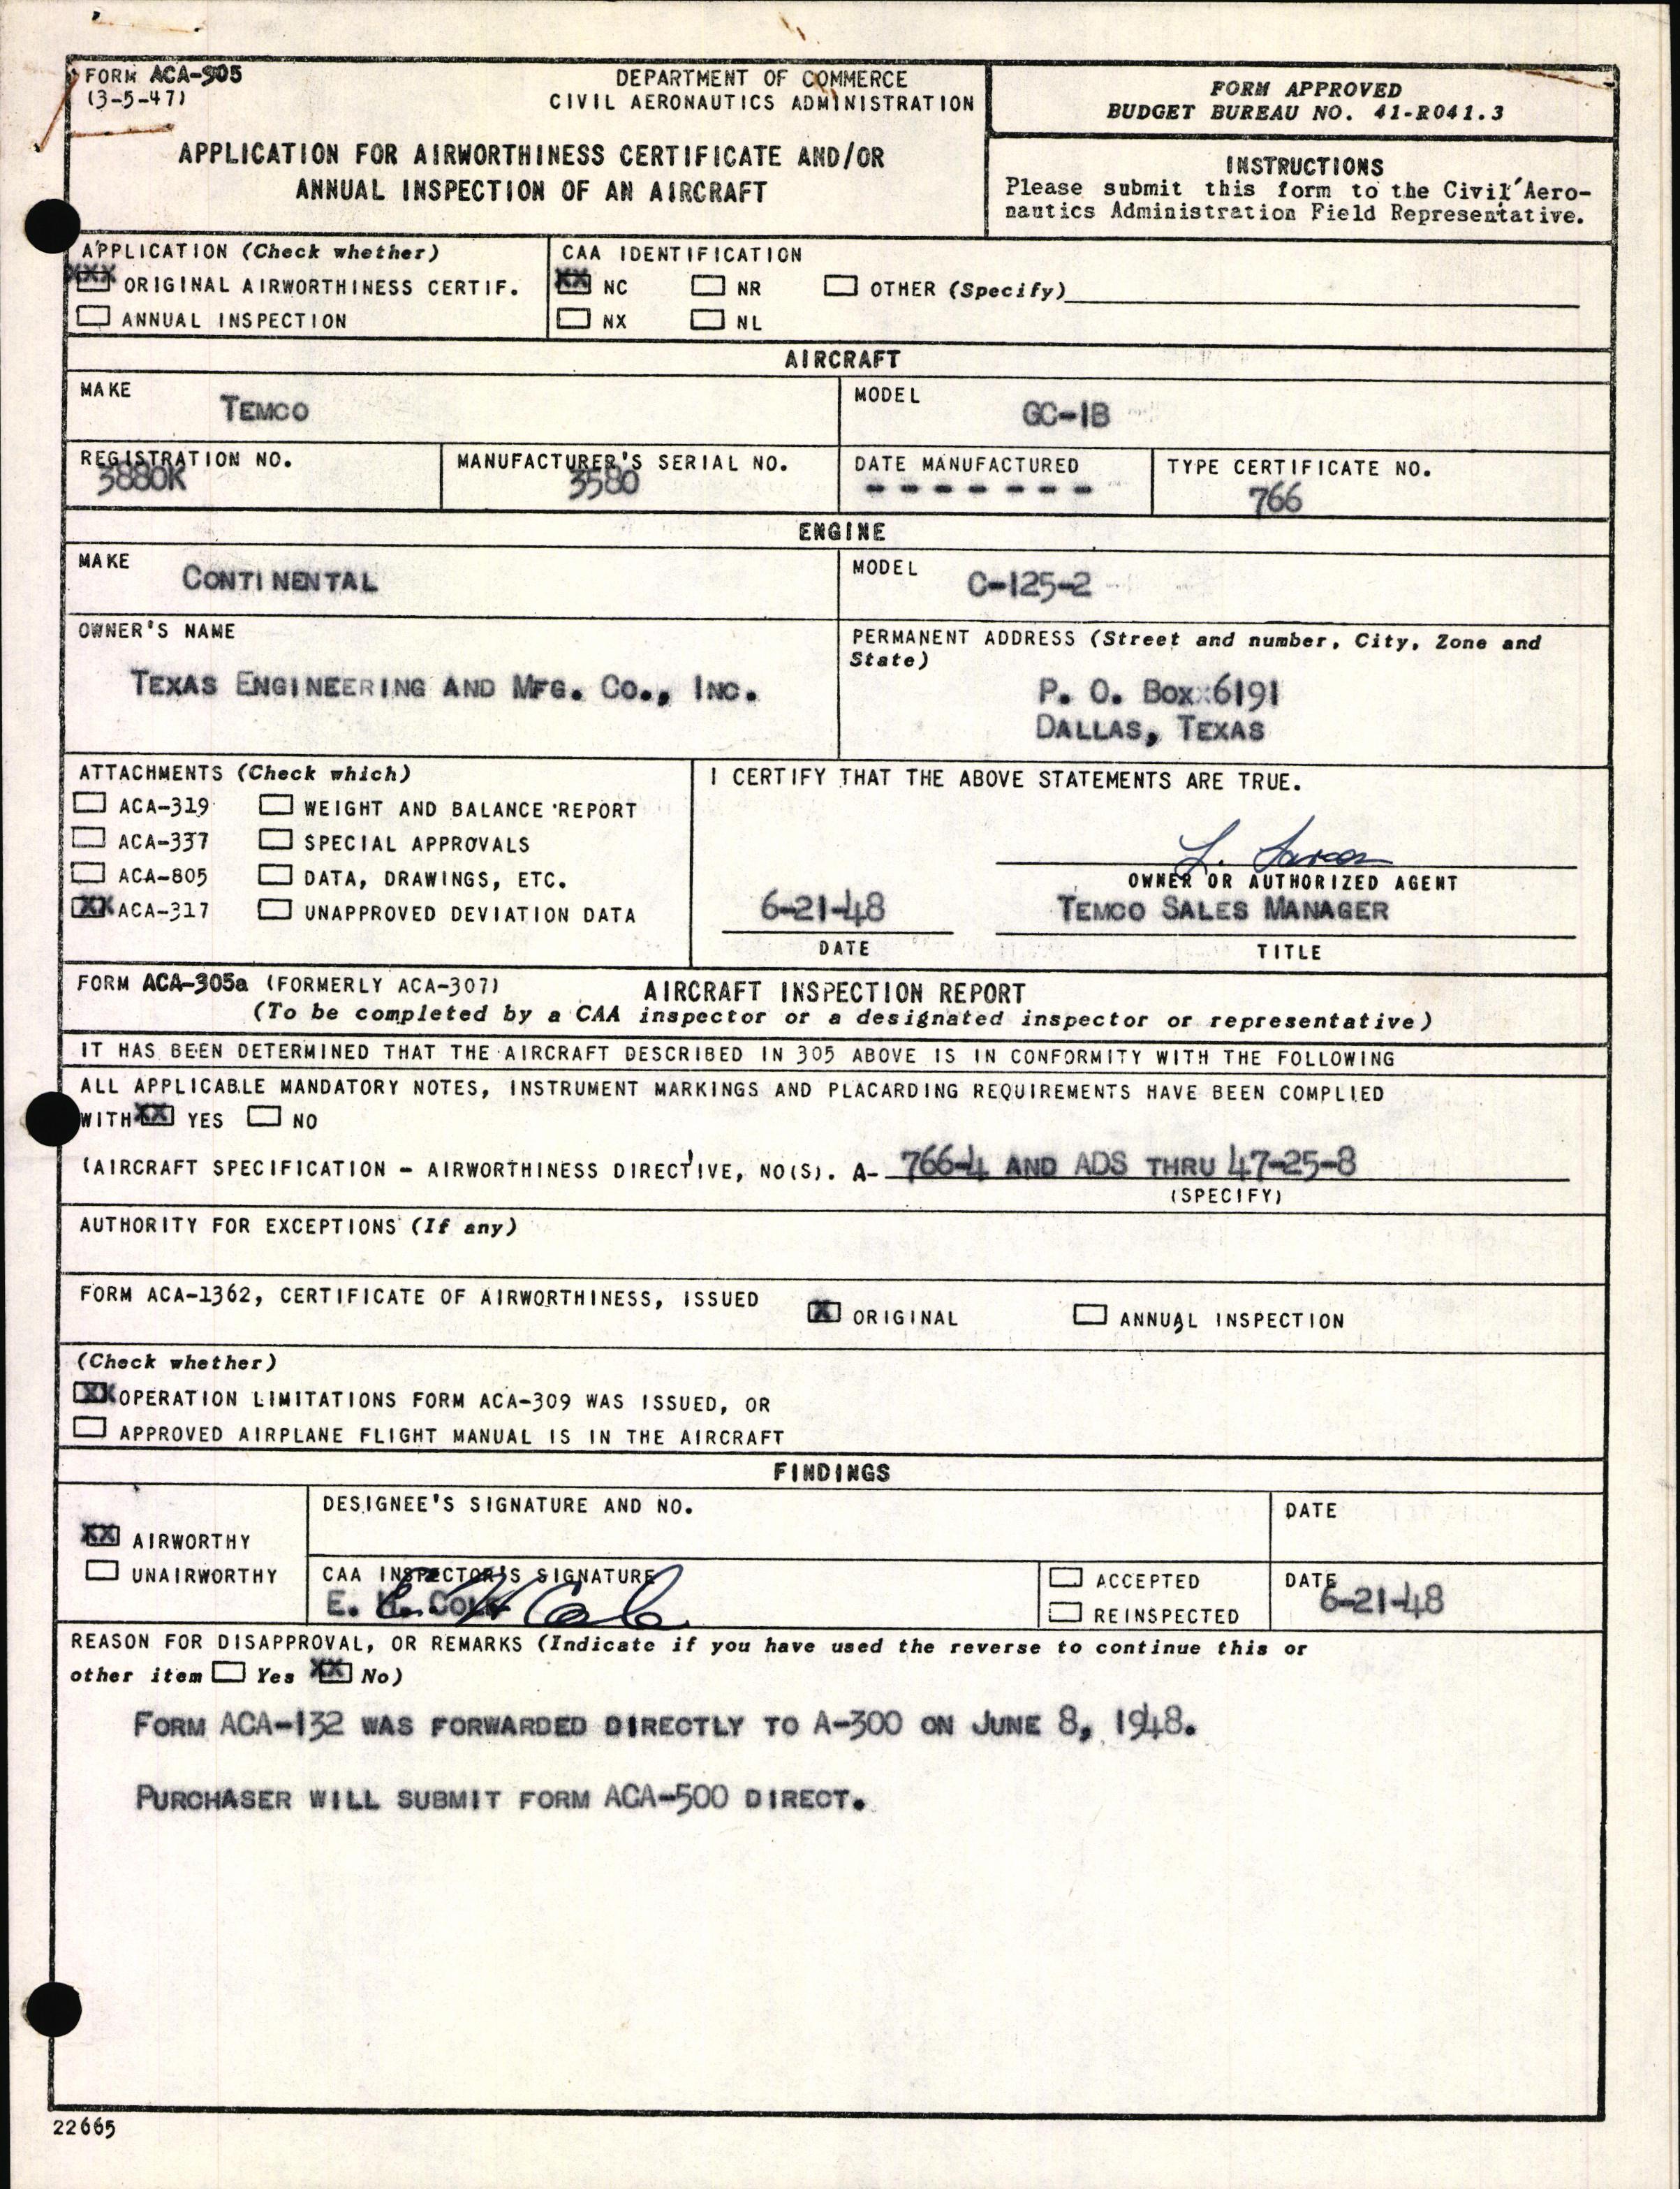 FORM ACA-305
(3-5-47)
DEPARTMENT OF COMMERCE
CIVIL AERONAUTICS ADMINISTRATION
APPLICATION FOR AIRWORTHINESS CERTIFICATE AND/OR
ANNUAL INSPECTION OF AN AIRCRAFT
FORM APPROVED
BUDGET BUREAU NO. 41-R041.3
INSTRUCTIONS
Please submit this form to the Civil Aero-
nautics Administration Field Representative.
APPLICATION (Check whether)
XXX ORIGINAL AIRWORTHINESS CERTIF.
ANNUAL INSPECTION
CAA IDENTIFICATION
XX NC NR OTHER (Specify)
NX NL
AIRCRAFT
MAKE
TEMCO
MODEL
GC-1B
REGISTRATION NO.
3880K
MANUFACTURER'S SERIAL NO.
3580
DATE MANUFACTURED
- - - - - - -
TYPE CERTIFICATE NO.
766
ENGINE
MAKE
CONTINENTAL
MODEL
C-125-2
OWNER'S NAME
TEXAS ENGINEERING AND MFG. CO., INC.
PERMANENT ADDRESS (Street and number, City, Zone and
State)
P. O. BOX 6191
DALLAS, TEXAS
ATTACHMENTS (Check which)
ACA-319 WEIGHT AND BALANCE REPORT
ACA-337 SPECIAL APPROVALS
ACA-805 DATA, DRAWINGS, ETC.
XX ACA-317 UNAPPROVED DEVIATION DATA
I CERTIFY THAT THE ABOVE STATEMENTS ARE TRUE.
L.
OWNER OR AUTHORIZED AGENT
6-21-48
TEMCO SALES MANAGER
DATE
TITLE
FORM ACA-305a (FORMERLY ACA-307)
AIRCRAFT INSPECTION REPORT
(To be completed by a CAA inspector or a designated inspector or representative)
IT HAS BEEN DETERMINED THAT THE AIRCRAFT DESCRIBED IN 305 ABOVE IS IN CONFORMITY WITH THE FOLLOWING
ALL APPLICABLE MANDATORY NOTES, INSTRUMENT MARKINGS AND PLACARDING REQUIREMENTS HAVE BEEN COMPLIED
WITH XX YES NO
(AIRCRAFT SPECIFICATION - AIRWORTHINESS DIRECTIVE, NO(S). A- 766-4 AND ADS THRU 47-25-8
(SPECIFY)
AUTHORITY FOR EXCEPTIONS (If any)
FORM ACA-1362, CERTIFICATE OF AIRWORTHINESS, ISSUED X ORIGINAL ANNUAL INSPECTION
(Check whether)
XX OPERATION LIMITATIONS FORM ACA-309 WAS ISSUED, OR
APPROVED AIRPLANE FLIGHT MANUAL IS IN THE AIRCRAFT
FINDINGS
XX AIRWORTHY
UNAIRWORTHY
DESIGNEE'S SIGNATURE AND NO.
DATE
CAA INSPECTOR'S SIGNATURE
E. H. COLE
ACCEPTED
REINSPECTED
DATE
6-21-48
REASON FOR DISAPPROVAL, OR REMARKS (Indicate if you have used the reverse to continue this or
other item Yes XX No)
FORM ACA-132 WAS FORWARDED DIRECTLY TO A-300 ON JUNE 8, 1948.
PURCHASER WILL SUBMIT FORM ACA-500 DIRECT.
22665